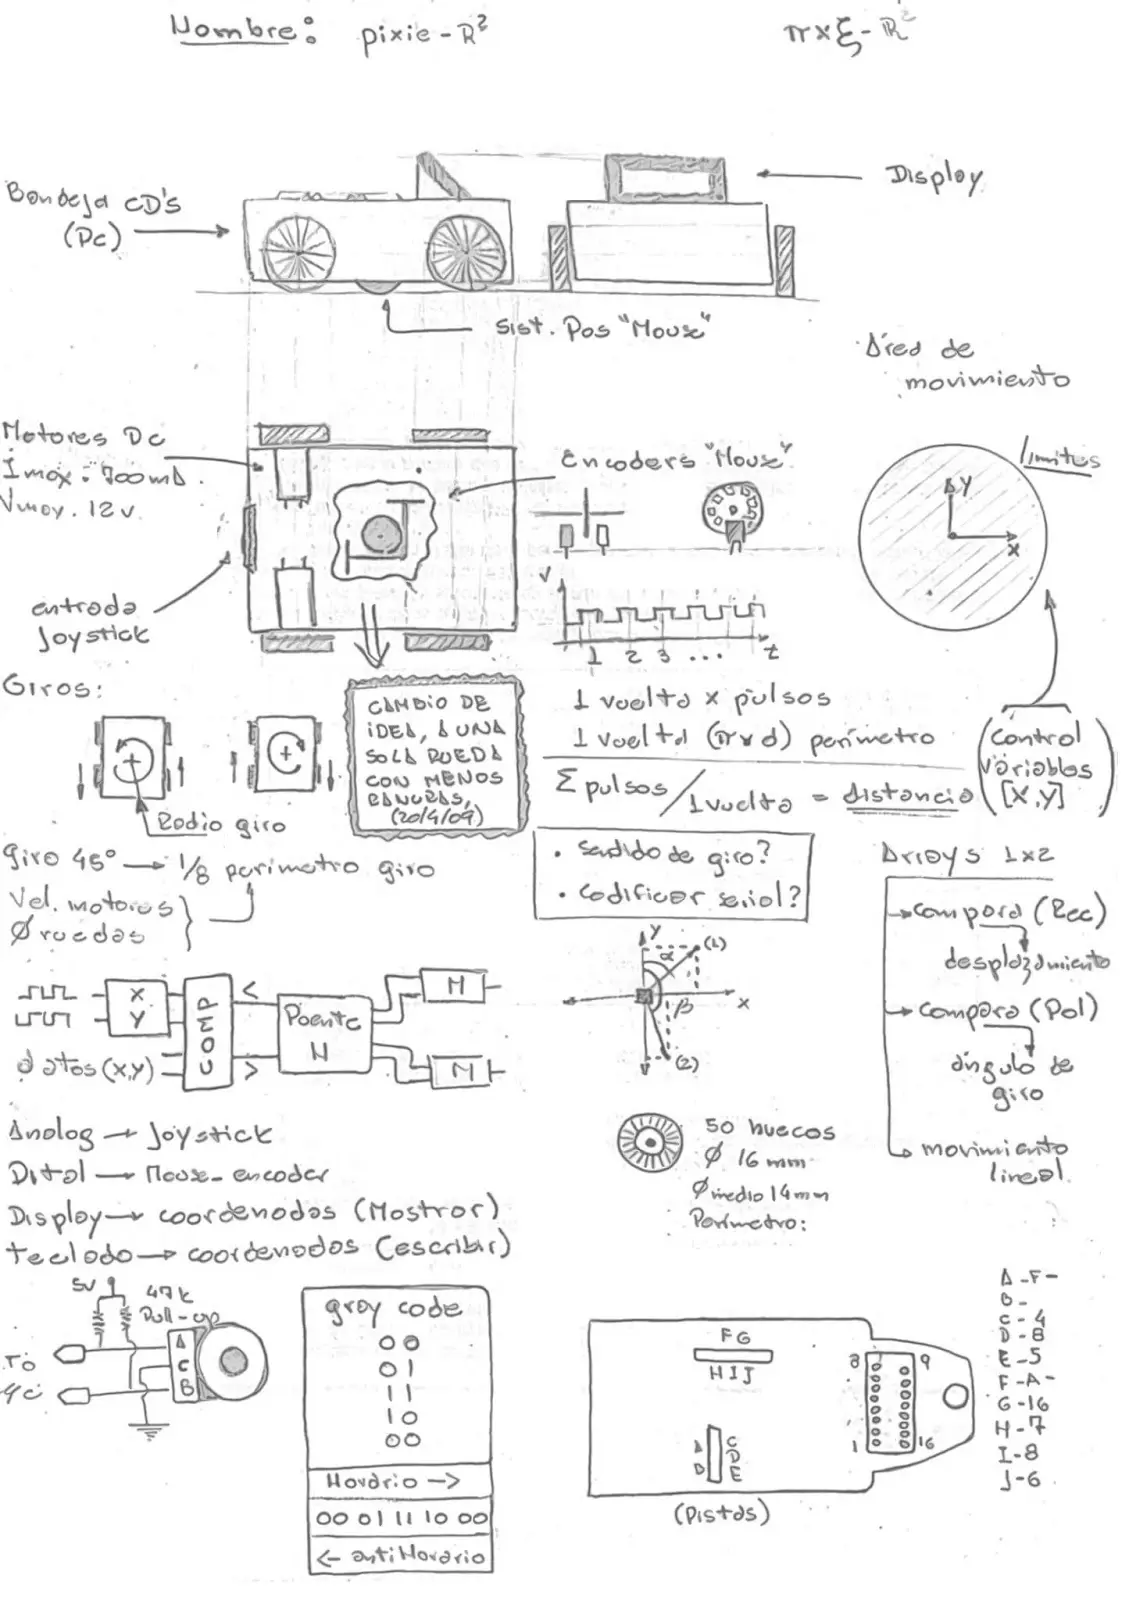 Nombre: pixie-R²
πxξ-ℝ²
Display
Bandeja CD's
(Pc)
Sist. Pos "Mouse"
Área de
movimiento
Motores Dc
Imax: 700mA.
Vmax. 12v.
Encoders "Mouse"
limites
Y
X
V
entrada
Joystick
1 2 3 ... t
Giros:
CAMBIO DE
IDEA, A UNA
SOLA RUEDA
CON MENOS
RANURAS,
(20/4/09)
1 vuelta x pulsos
1 vuelta (π x d) perímetro
Σ pulsos/1 vuelta = distancia
(control
variables
[X,Y])
Radio giro
Giro 45° → 1/8 perímetro giro
Vel. motores
Ø ruedas
· sentido de giro?
· codificar señal?
Arrays 1x2
compara (Rec)
desplazamiento
compara (Pol)
ángulo de
giro
movimiento
lineal
Y
(1)
α
β
X
(2)
X
Y
COMP
<
>
Puente
H
M
M
datos (X,Y)
Analog → Joystick
Dital → Mouse-encoder
Display → coordenadas (Mostrar)
Teclado → coordenadas (escribir)
50 huecos
Ø 16 mm
Ø medio 14mm
Perímetro:
5V
47k
Pull-up
A
C
B
To
gray code
00
01
11
10
00
Horario →
00 01 11 10 00
← antiHorario
FG
HIJ
A
B
C
D
E
8 9
1 16
(Pistas)
A-F-
B-
C-4
D-8
E-5
F-A-
G-16
H-7
I-8
J-6